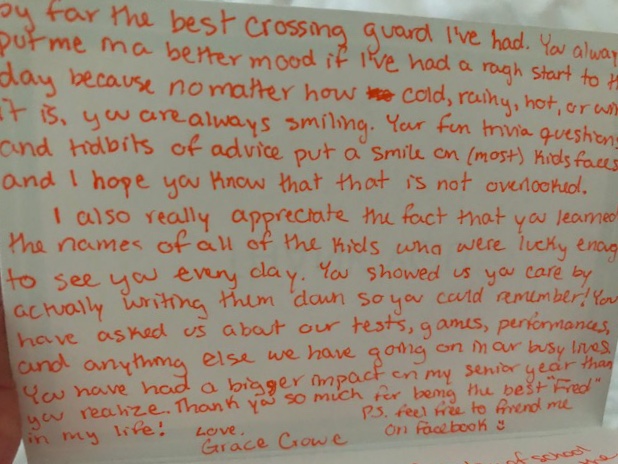 by far the best crossing guard I've had. You alway
put me in a better mood if I've had a rough start to th
day because no matter how cold, rainy, hot, or win
it is, you are always smiling. Your fun trivia questions
and tidbits of advice put a smile on (most) kids faces
and I hope you know that that is not overlooked.
I also really appreciate the fact that you learned
the names of all of the kids who were lucky enoug
to see you every day. You showed us you care by
actually writing them down so you could remember! You
have asked us about our tests, games, performances,
and anything else we have going on in our busy lives.
You have had a bigger impact on my senior year than
you realize. Thank you so much for being the best "Fred"
in my life!
Love,
Grace Crowe
P.S. feel free to friend me
on Facebook
of school